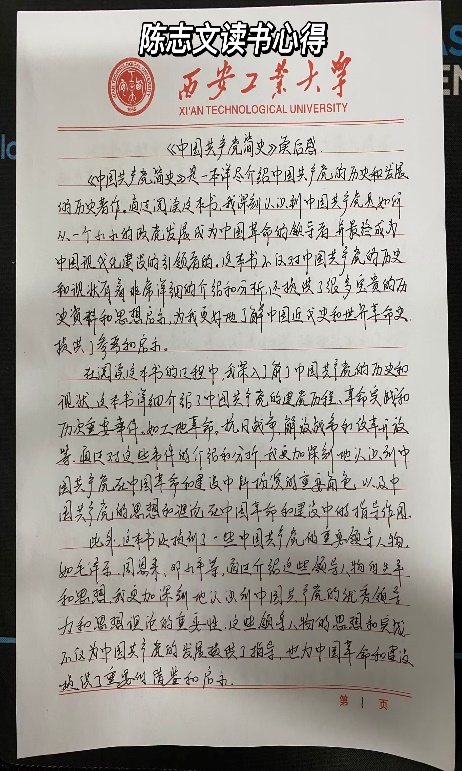 陈志文读书心得
西安工业大学
XI'AN TECHNOLOGICAL UNIVERSITY
《中国共产党简史》读后感
《中国共产党简史》是一本详尽介绍中国共产党的历史和发展
的历史著作。通过阅读这本书，我深刻认识到中国共产党是如何
从一个小小的政党发展成为中国革命的领导者，并最终成为
中国现代化建设的引领者的。这本书不仅对中国共产党的历史
和现状有着非常详细的介绍和分析，还提供了很多宝贵的历
史资料和思想启示，为我更好地了解中国近代史和世界革命史
提供了参考和启示。
在阅读这本书的过程中，我深入了解了中国共产党的历史和
现状。这本书详细介绍了中国共产党的建党历程、革命实践和
历次重要事件，如土地革命、抗日战争、解放战争和改革开放
等。通过对这些事件的介绍和分析，我更加深刻地认识到中
国共产党在中国革命和建设中所扮演的重要角色，以及中
国共产党的思想和理论在中国革命和建设中的指导作用。
此外，这本书还提到了一些中国共产党的重要领导人物，
如毛泽东、周恩来、邓小平等，通过介绍这些领导人物的生平
和思想，我更加深刻地认识到中国共产党的优秀领导
力和思想理论的重要性。这些领导人物的思想和实践
不仅为中国共产党的发展提供了指导，也为中国革命和建设
提供了重要的借鉴和启示。
第 1 页